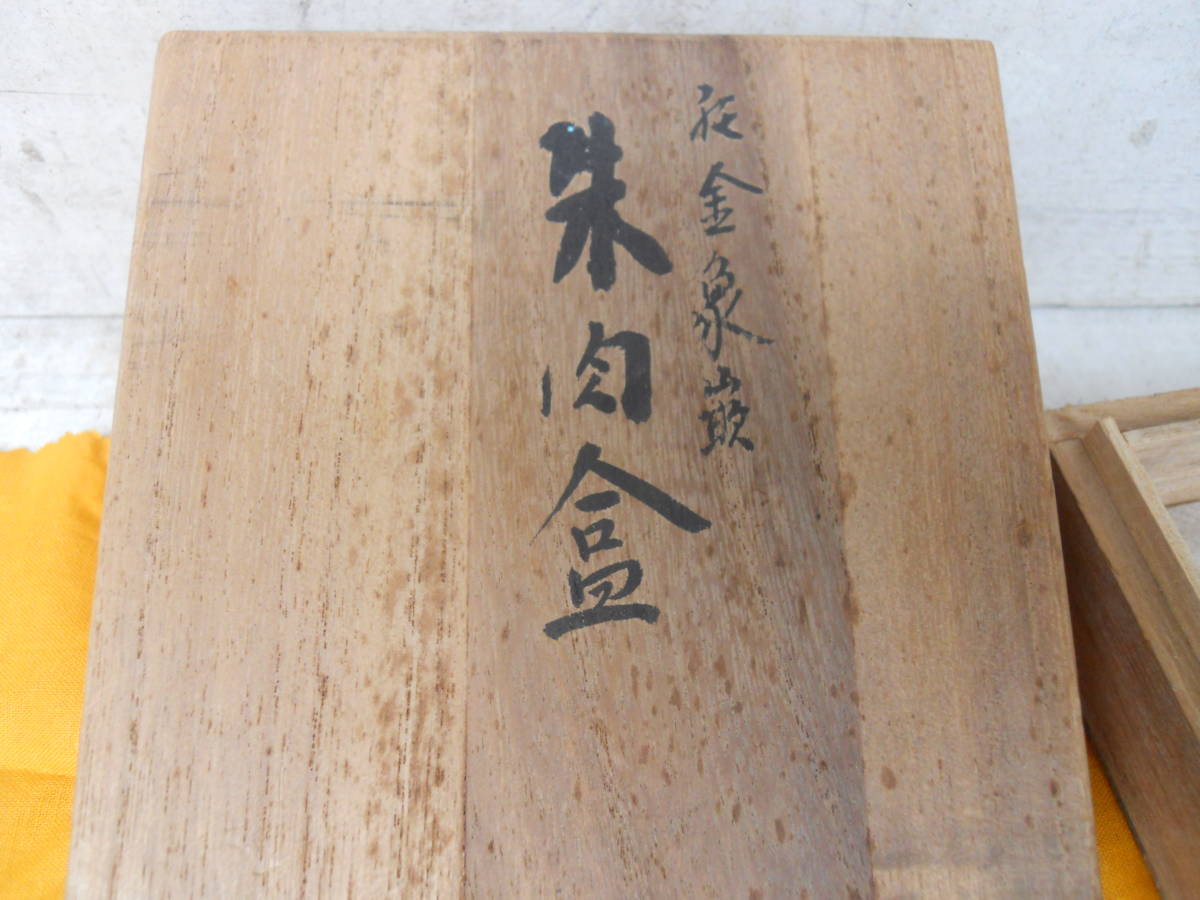 金象嵌
朱肉盒